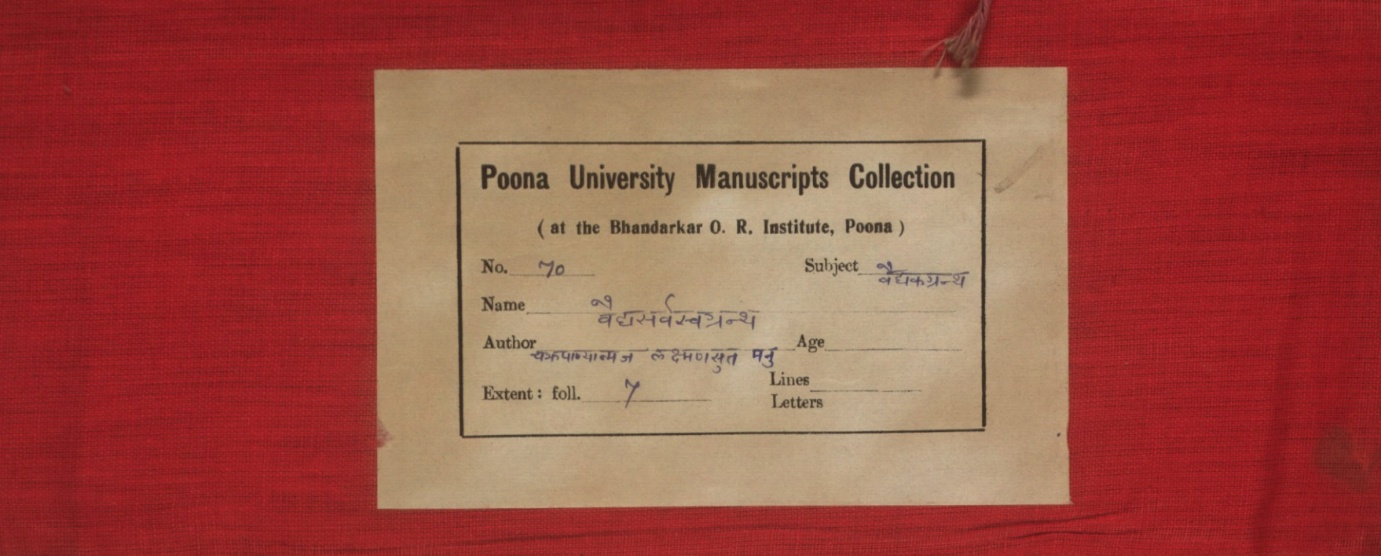 Poona University Manuscripts Collection
( at the Bhandarkar O. R. Institute, Poona )
No. 70 Subject वैद्यकग्रन्थ
Name वैद्यसर्वस्वग्रन्थ
Author चक्रपाण्यात्मज लक्ष्मणसुत मनु Age
Lines
Extent : foll. 7
Letters